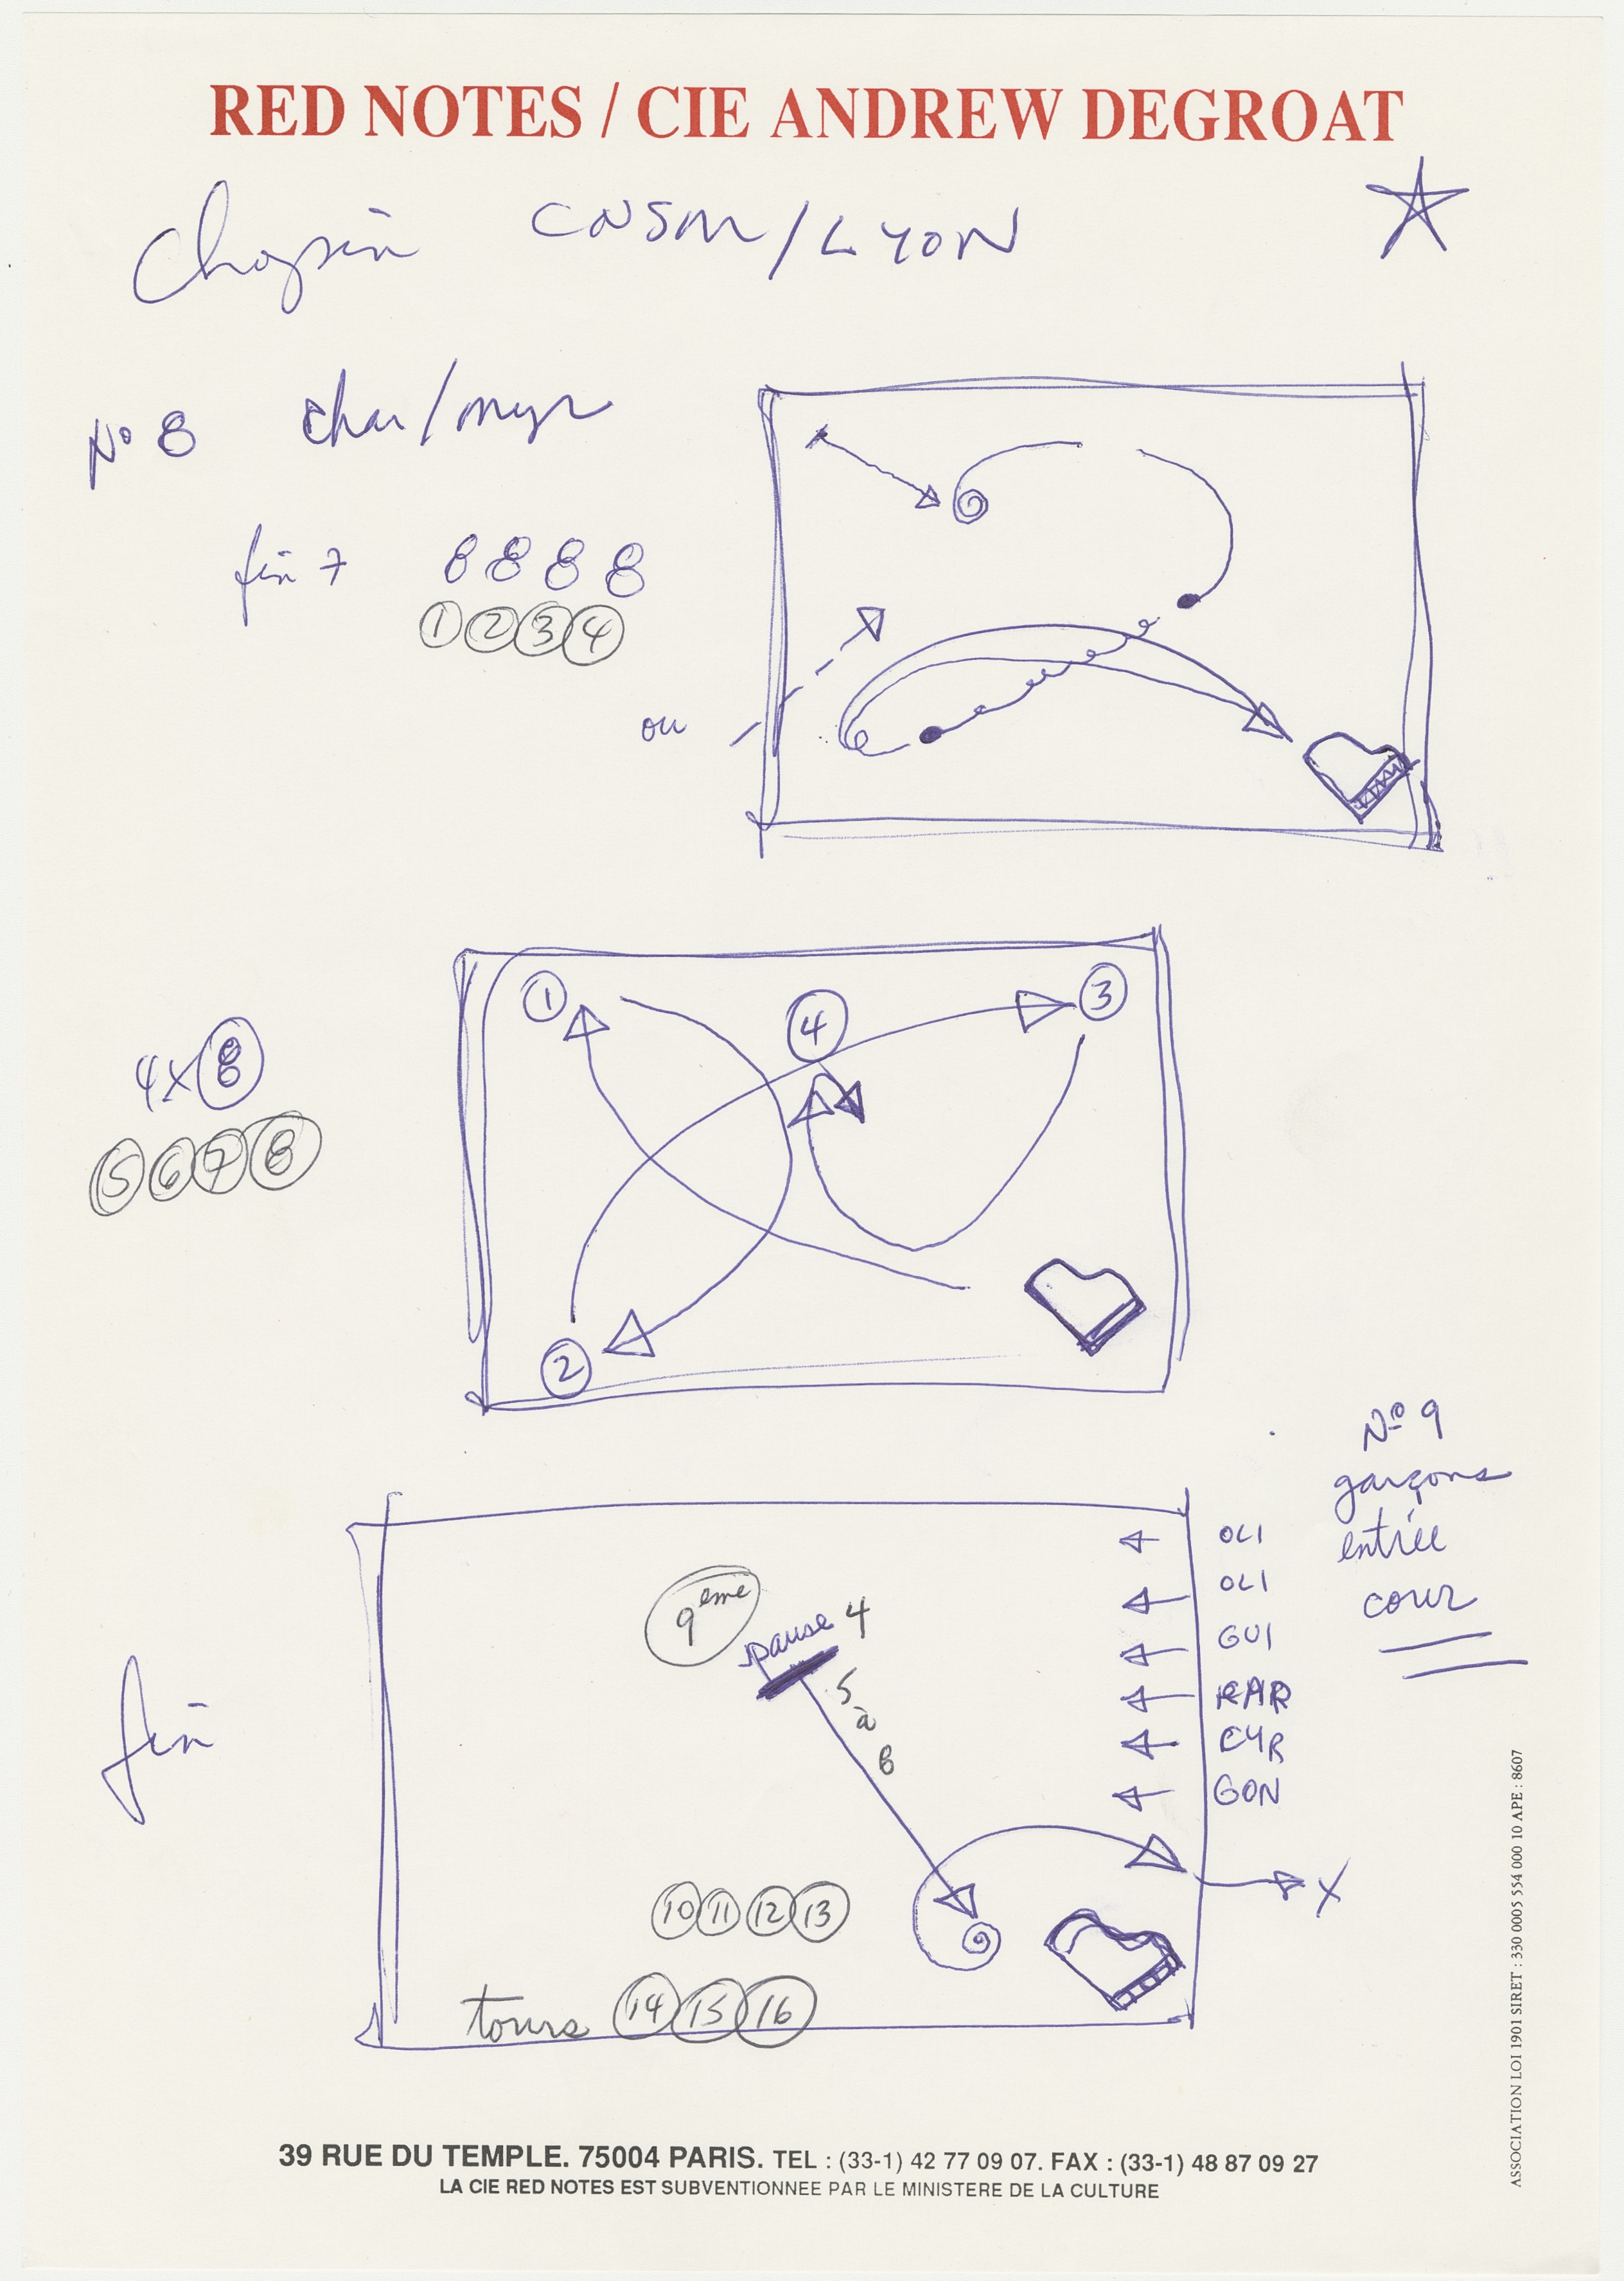 RED NOTES / CIE ANDREW DEGROAT
Chopin CNSM/LYON
N° 8 char/myr
fin 7 8 8 8 8
1 2 3 4
ou
4x8
5 6 7 8
1
4
3
2
N° 9
garçons
entrée
cour
OLI
OLI
GUI
RAR
CYR
GON
9eme
pause 4
5
à
8
fin
X
10 11 12 13
tours 14 15 16
39 RUE DU TEMPLE. 75004 PARIS. TEL : (33-1) 42 77 09 07. FAX : (33-1) 48 87 09 27
LA CIE RED NOTES EST SUBVENTIONNEE PAR LE MINISTERE DE LA CULTURE
ASSOCIATION LOI 1901 SIRET : 330 0005 554 000 10 APE : 8607